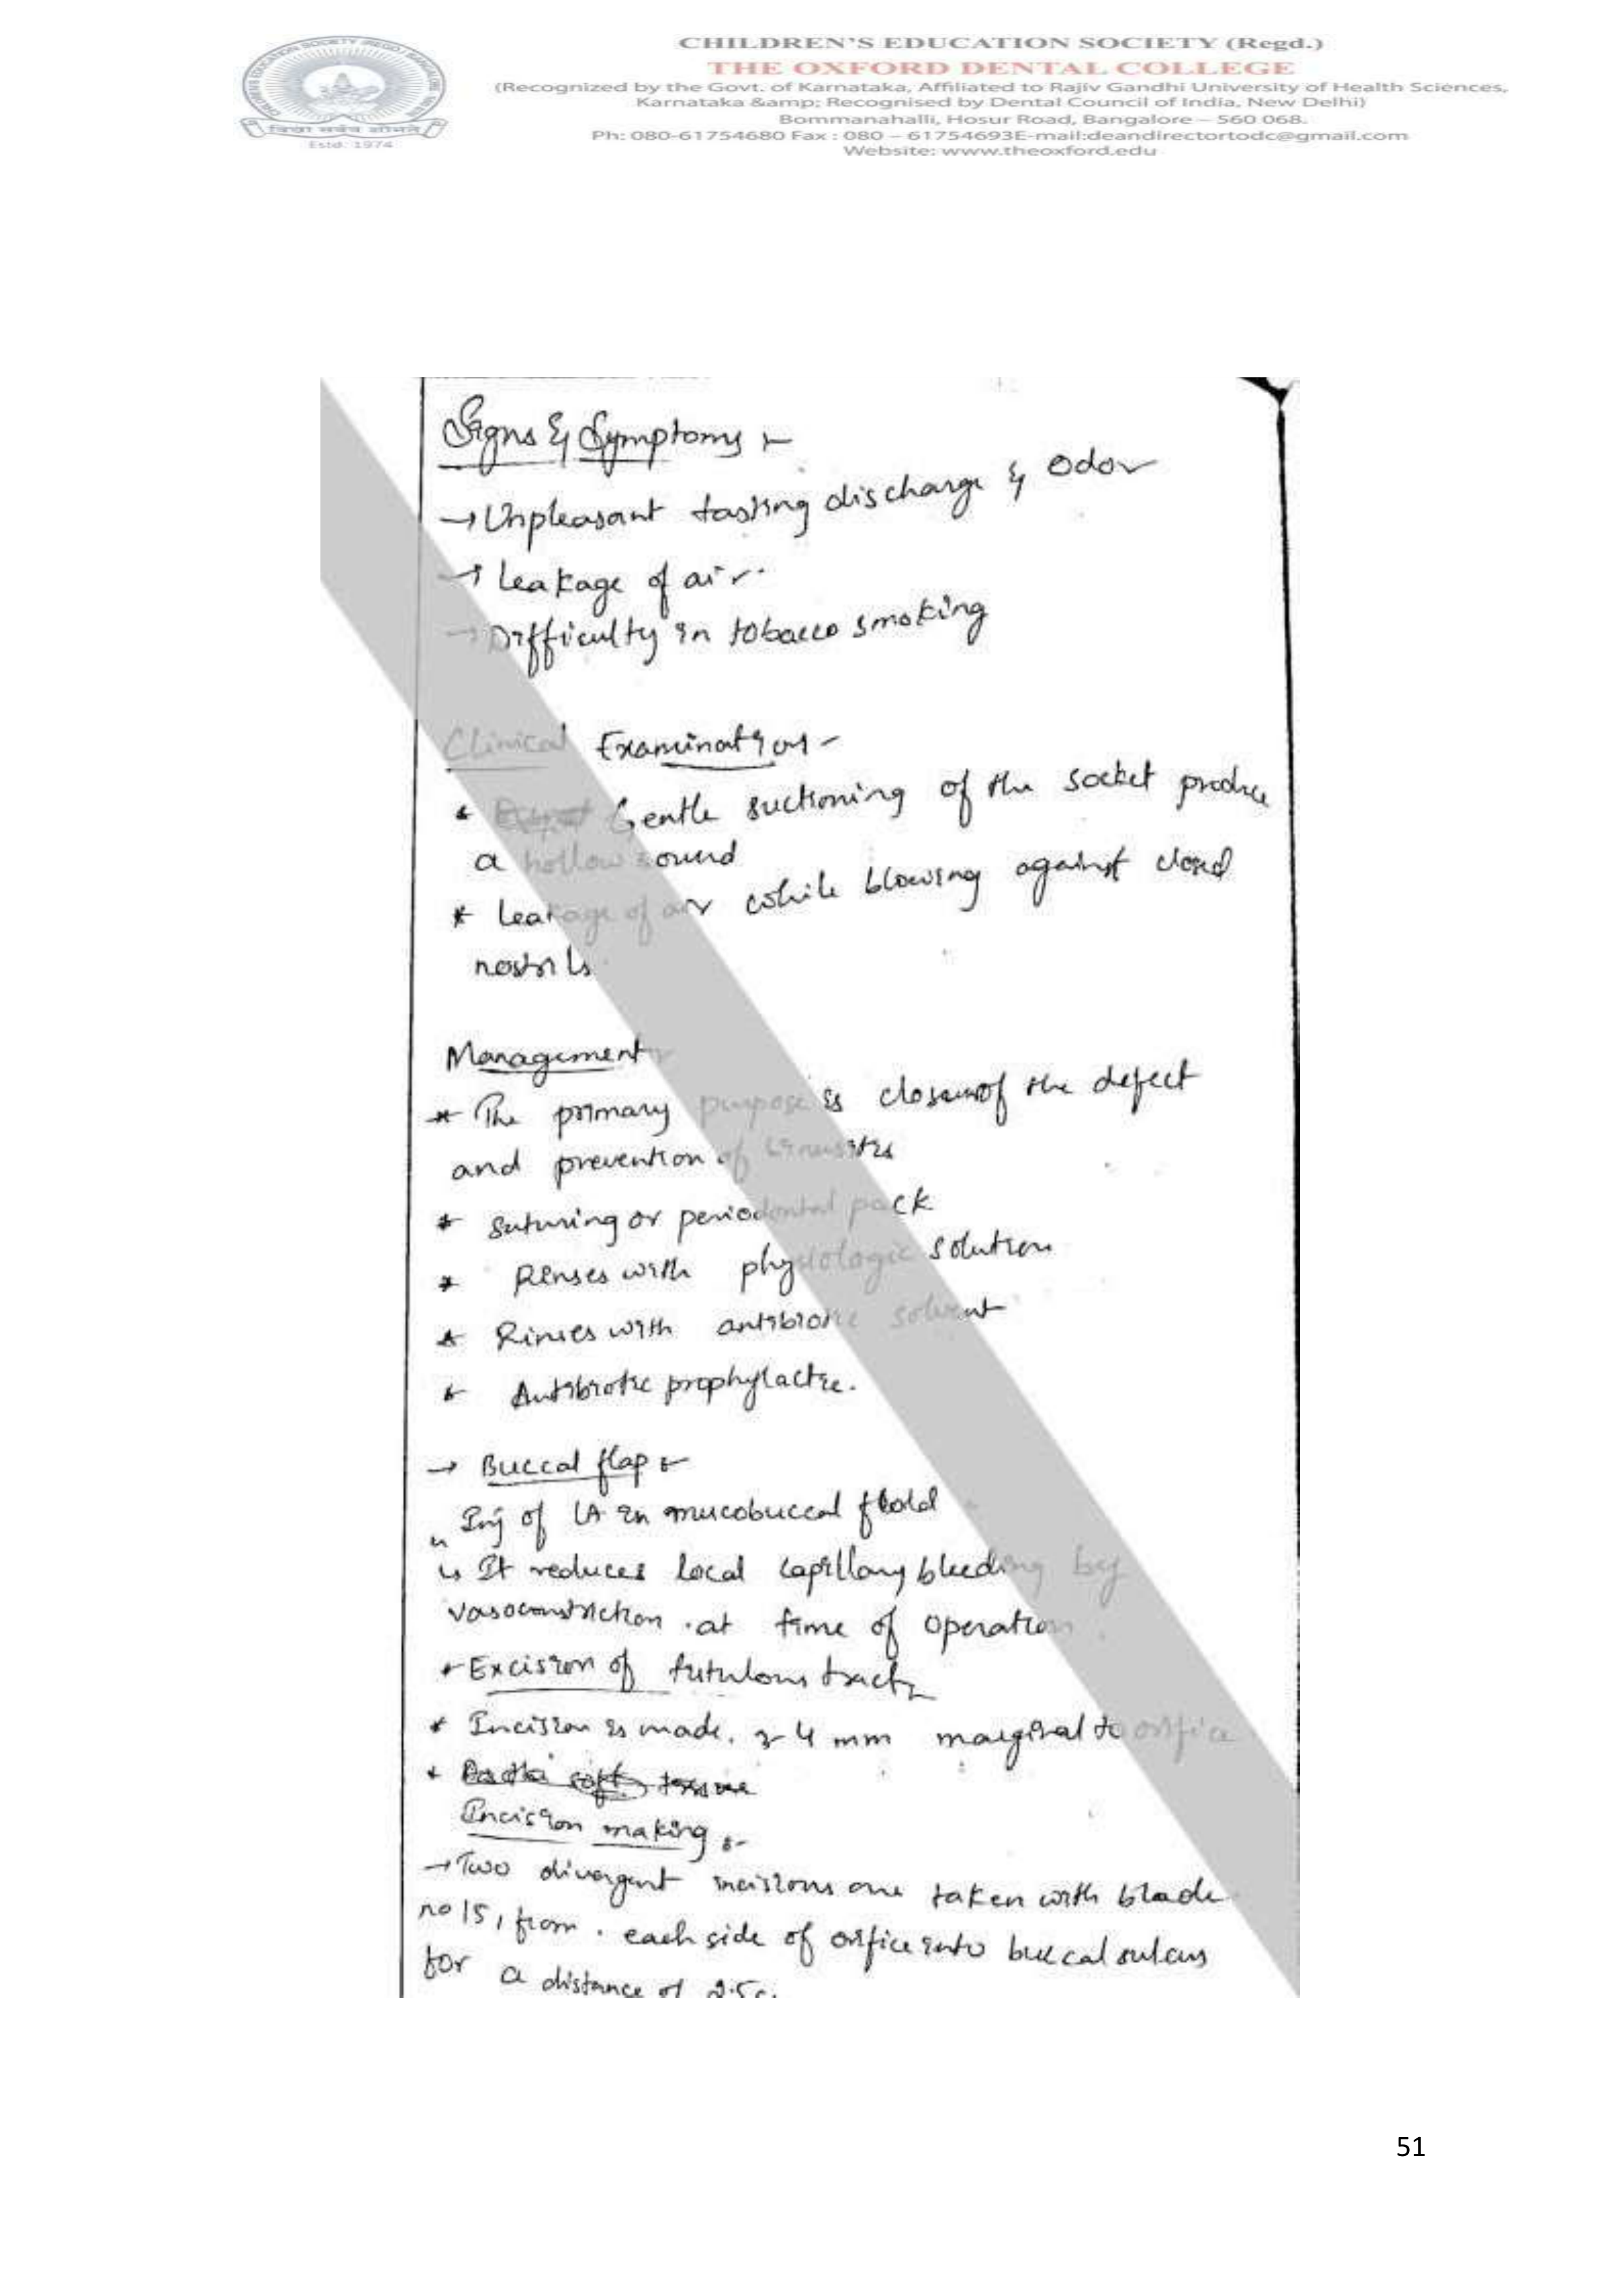 CHILDREN'S EDUCATION SOCIETY (Regd.)
THE OXFORD DENTAL COLLEGE
(Recognized by the Govt. of Karnataka, Affiliated to Rajiv Gandhi University of Health Sciences,
Karnataka &amp; Recognised by Dental Council of India, New Delhi)
Bommanahalli, Hosur Road, Bangalore – 560 068.
Ph: 080-61754680 Fax : 080 – 61754693E-mail:deandirectortodc@gmail.com
Website: www.theoxford.edu
Estd. 1974
Signs & Symptoms :-
→ Unpleasant tasting discharge & Odor
→ Leakage of air.
→ Difficulty in tobacco smoking
Clinical Examination -
* Gentle suctioning of the socket produce
a hollow sound
* Leakage of air while blowing against closed
nostrils.
Management
* The primary purpose is closure of the defect
and prevention of sinusitis
* Suturing or periodontal pack
* Rinses with physiologic solution
* Rinses with antibiotic solvent
* Antibiotic prophylactic.
→ Buccal flap :-
Inj of LA in mucobuccal fold
↳ It reduces local capillary bleeding by
vasoconstriction at time of operation.
* Excision of fistulous tract
* Incision is made. 3-4 mm marginal to orifice
Incision making :-
→ Two divergent incisions are taken with blade
no 15, from each side of orifice into buccal sulcus
for a distance of 2.5
51